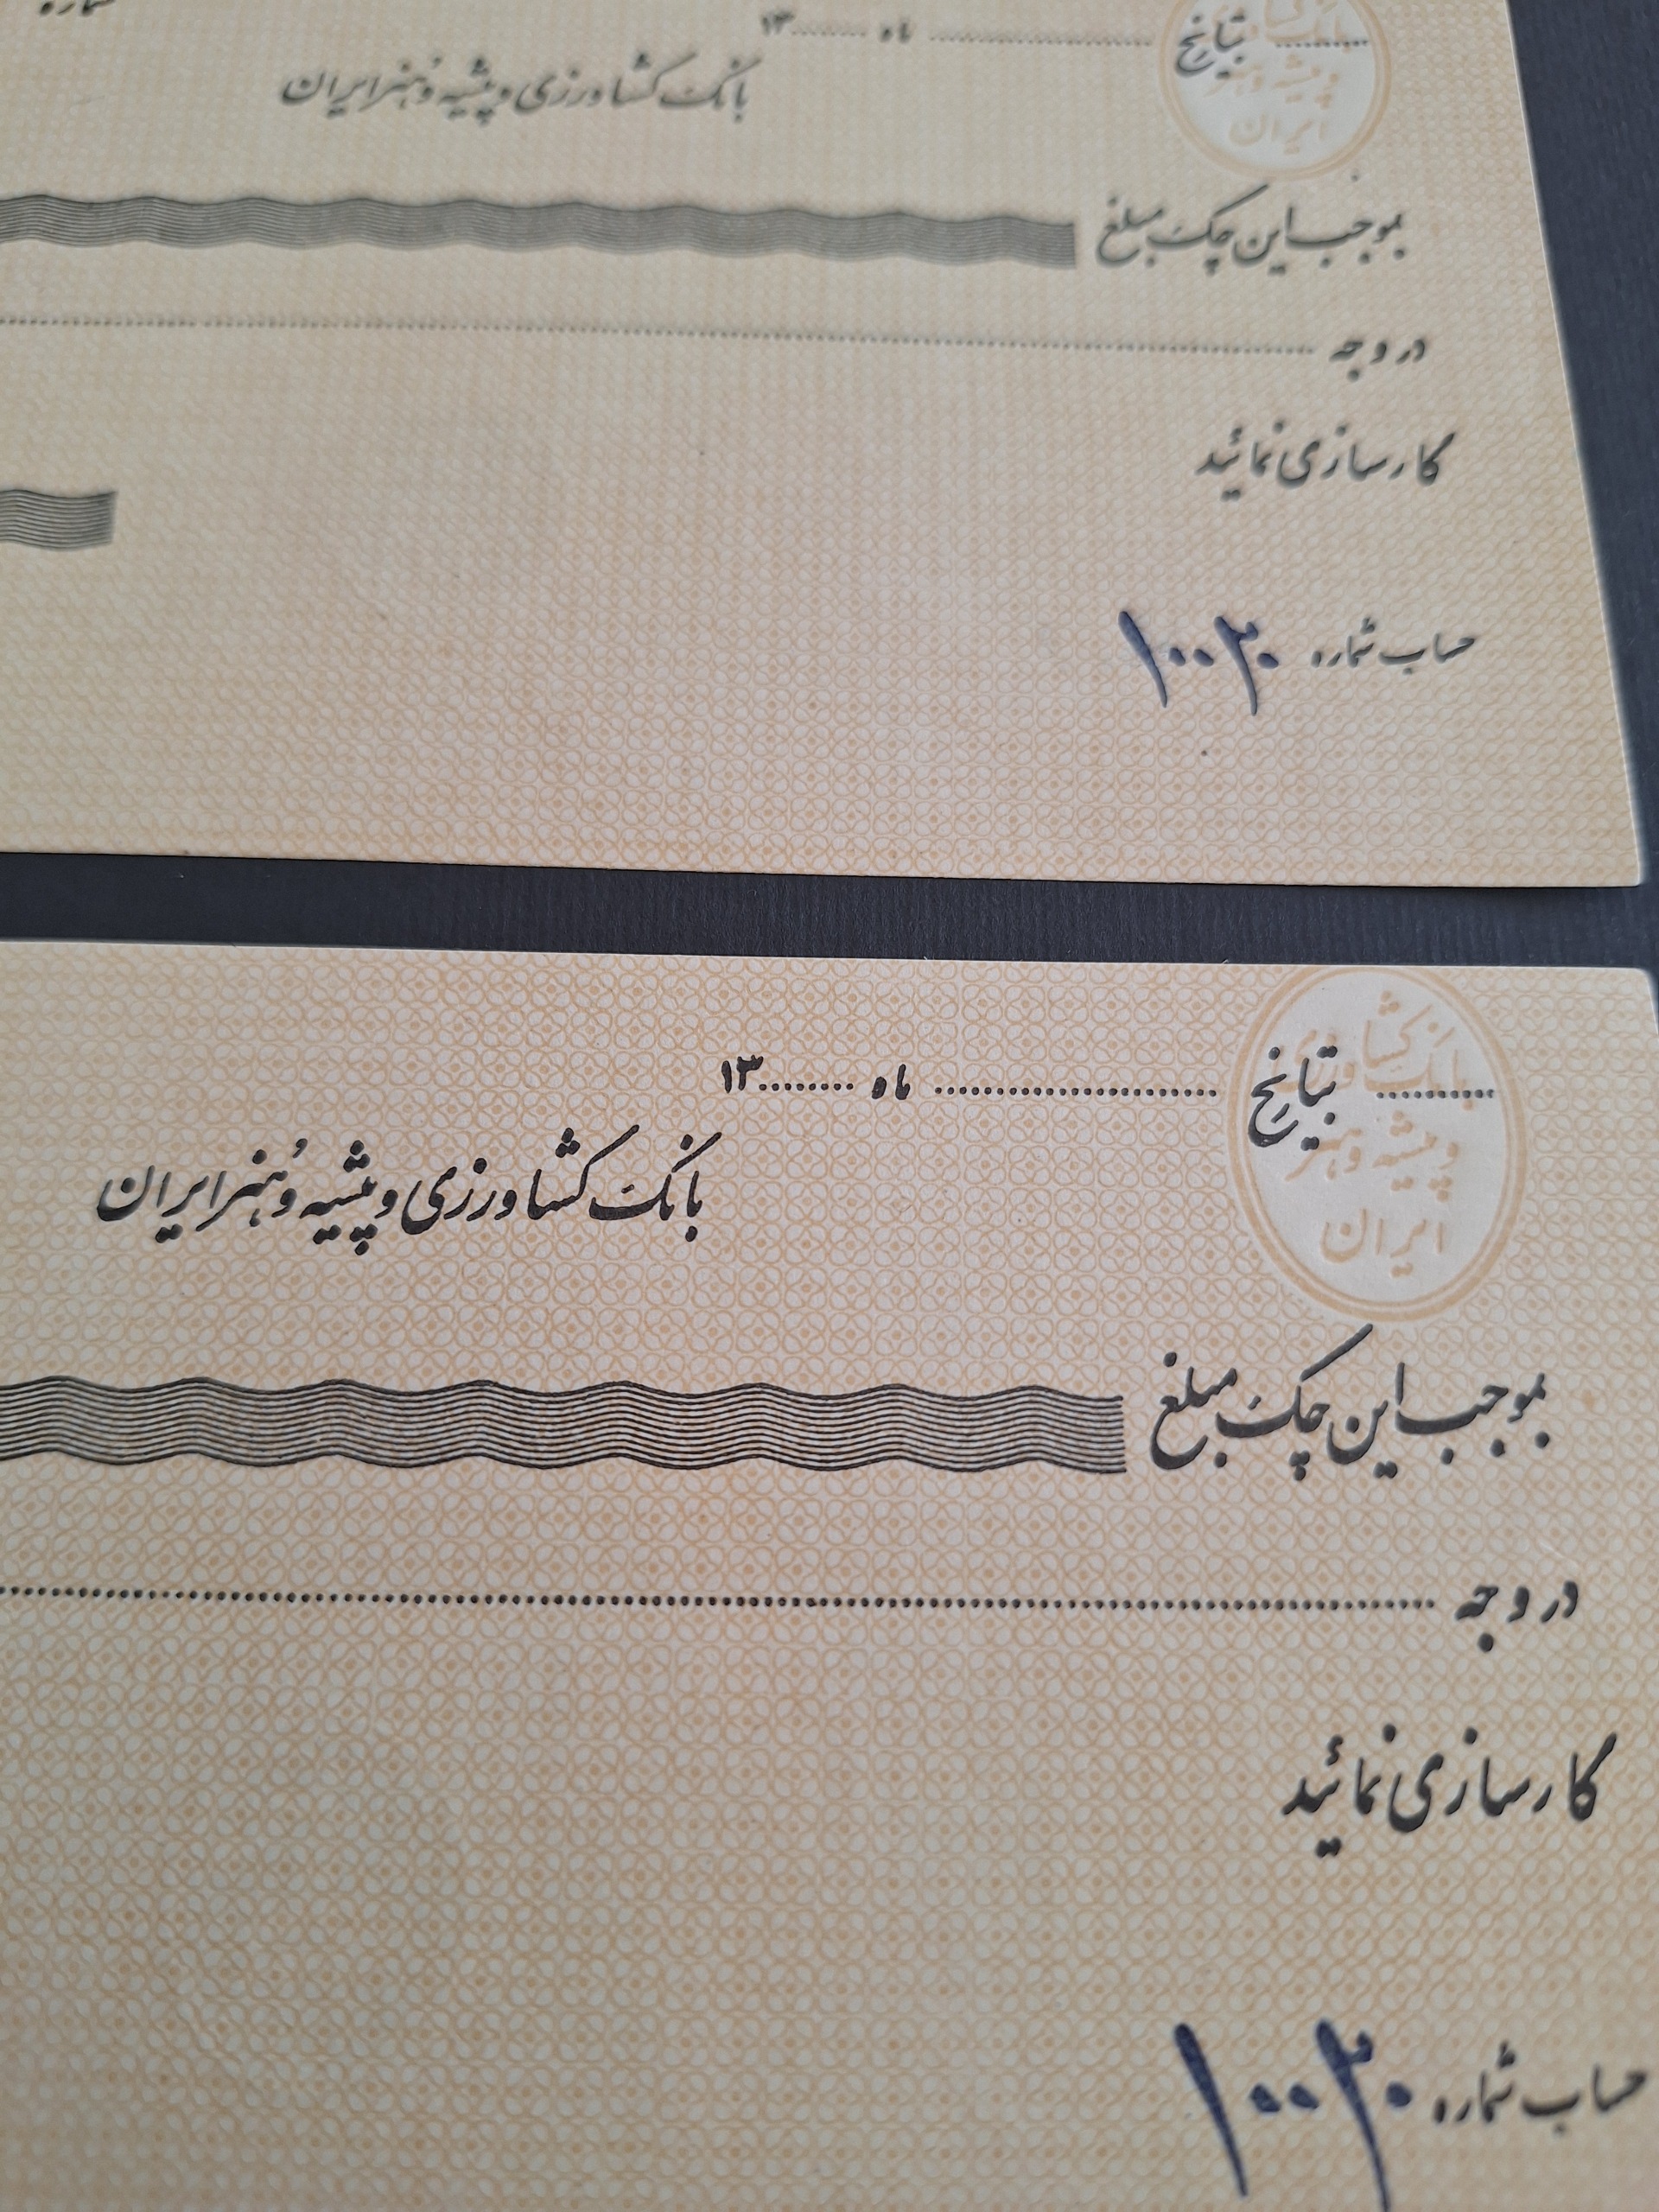 بتاریخ ماه ۱۳
بانک کشاورزی و پیشه و هنر ایران
بانک کشاورزی
و پیشه و هنر
ایران
بموجب این چک مبلغ
در وجه
کارسازی نمائید
حساب شماره ۱۰۰۲۰
بتاریخ ماه ۱۳
بانک کشاورزی و پیشه و هنر ایران
بانک کشاورزی
و پیشه و هنر
ایران
بموجب این چک مبلغ
در وجه
کارسازی نمائید
حساب شماره ۱۰۰۲۰